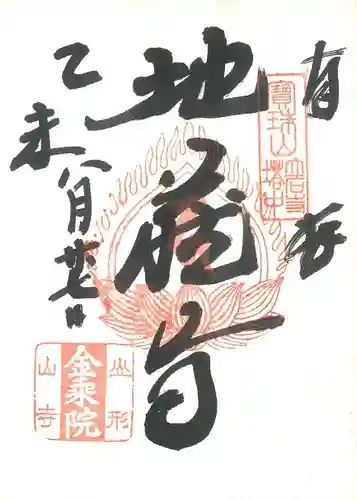 拝
寶珠山
立石寺
塔中
地蔵尊
乙未八月廿七日
山形
金乘院
山寺